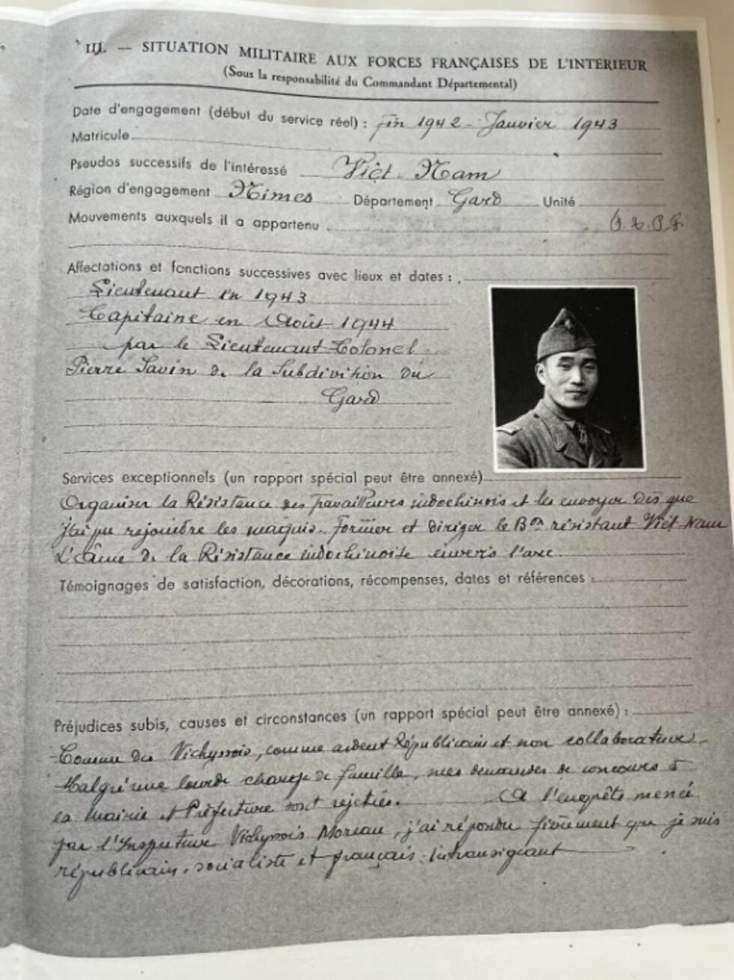 III. — SITUATION MILITAIRE AUX FORCES FRANÇAISES DE L'INTERIEUR
(Sous la responsabilité du Commandant Départemental)
Date d'engagement (début du service réel) : Fin 1942 - Janvier 1943
Matricule
Pseudos successifs de l'intéressé Viêt-Nam
Région d'engagement Nimes Département Gard Unité
Mouvements auxquels il a appartenu
Affectations et fonctions successives avec lieux et dates :
Lieutenant en 1943
Capitaine en Août 1944
par le Lieutenant Colonel
Pierre Savin de la Subdivision du
Gard
Services exceptionnels (un rapport spécial peut être annexé)
Organiser la Résistance des Travailleurs indochinois et les envoyer dès que
j'ai pu rejoindre les maquis. Former et diriger le Bon résistant Viêt-Nam
L'âme de la Résistance indochinoise envers l'axe.
Témoignages de satisfaction, décorations, récompenses, dates et références :
Préjudices subis, causes et circonstances (un rapport spécial peut être annexé) :
Connu des Vichyssois, comme ardent Républicain et non collaborateur.
Malgré une lourde charge de famille, mes demandes de concours à
la Mairie et Préfecture sont rejetées. A l'enquête mené
par l'Inspecteur Vichyssois Moreau, j'ai répondu fièrement que je suis
républicain, socialiste et français intransigeant